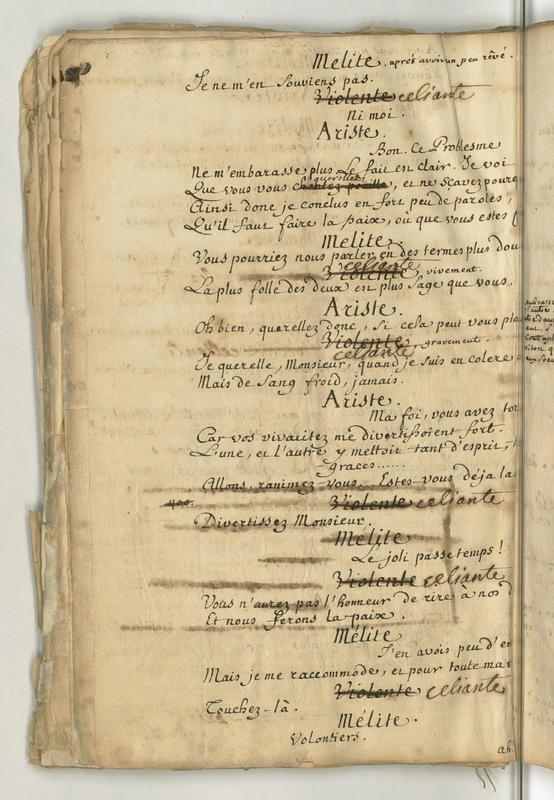 Melite, après avoir un peu rêvé.
Je ne m'en souviens pas.
Violente celiante
Ni moi.
Ariste.
Bon. Ce Problesme
Ne m'embarasse plus Le fait est clair. Je voi
querellez
Que vous vous chantez pouille, et ne scavez pourq
Ainsi donc je conclus en fort peu de paroles,
Qu'il faut faire la paix, ou que vous estes
Melite.
Vous pourriez nous parler en des termes plus dou
celiante
Violente, vivement.
La plus folle des deux est plus sage que vous.
Ariste.
Oh bien, querellez donc, si cela peut vous pla
Violente, gravement.
celiante
Je querelle, Monsieur, quand je suis en colere
Mais de sang froid, jamais.
Ariste.
Ma foi, vous avez tor
Car vos vivacitez me divertissoient fort.
L'une, et l'autre y mettoit tant d'esprit,
graces......
Allons, ranimez-vous... Estes-vous déja la
Violente celiante
Divertissez Monsieur.
Mélite.
Le joli passetemps!
Violente celiante
Vous n'aurez pas l'honneur de rire à nos d
Et nous ferons la paix.
Mélite
J'en avois peu d'en
Mais je me raccommode, et pour toute ma
Violente celiante
Touchez-là.
Mélite.
Volontiers.
ah